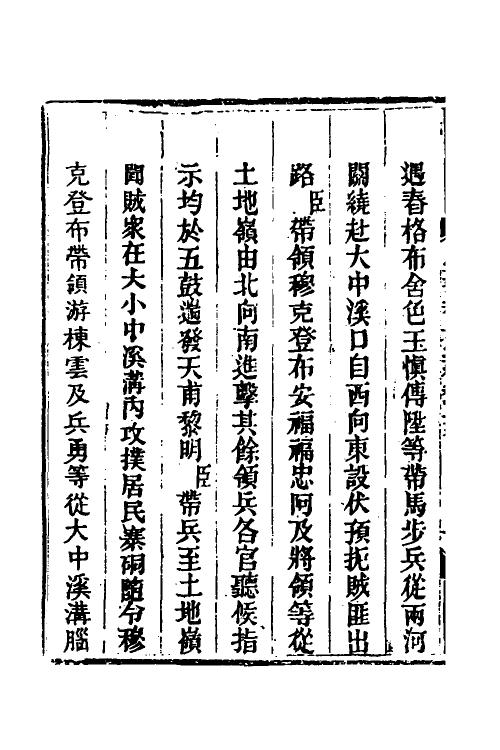 遇春格布舍色玉慎傳陞等帶馬步兵從兩河
關繞赴大中溪口自西向東設伏預扼賊匪出
路臣帶領穆克登布安福福忠阿及將領等從
土地嶺由北向南進擊其餘領兵各官聽候指
示均於五鼓遄發天甫黎明臣帶兵至土地嶺
聞賊衆在大小中溪溝內攻撲居民寨硐隨令穆
克登布帶領游棟雲及兵勇等從大中溪溝腦